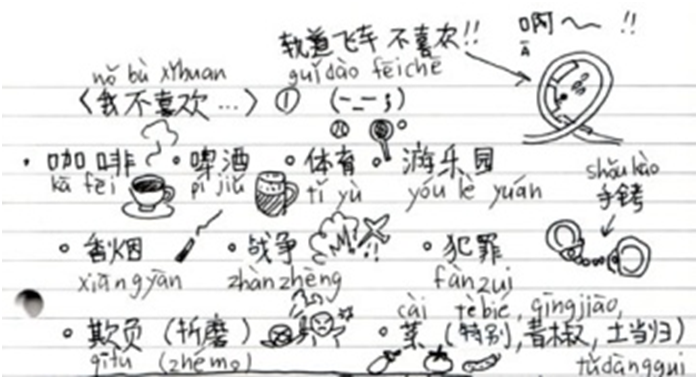 轨道飞车 不喜欢!! 啊～ !!
guǐdào fēichē Ā
nǒ bù xǐhuan
〈我不喜欢…〉 ① (-_-;)
・咖啡 ・啤酒 ・体育 ・游乐园
kā fēi pí jiǔ tǐ yù yóu lè yuán
shǒu kào
手铐
・香烟 ・战争 ・犯罪
xiāng yān zhàn zhēng fàn zuì
・欺负 (折磨) ・菜 (特别, 青椒, 土当归)
qīfu (zhémo) cài tèbié, qīngjiāo, tǔdāngguī